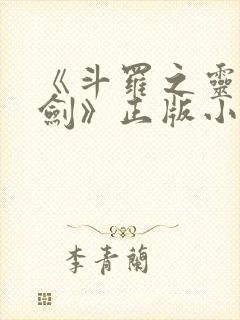 《斗羅之靈
劍》正版小
李青蘭